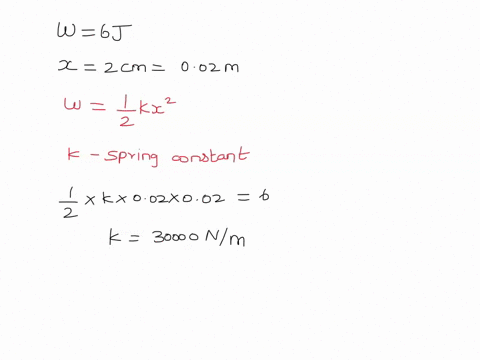 W = 6J
x = 2cm = 0.02m
W = 1/2 kx²
k - spring constant
1/2 × k × 0.02 × 0.02 = 6
k = 30000 N/m